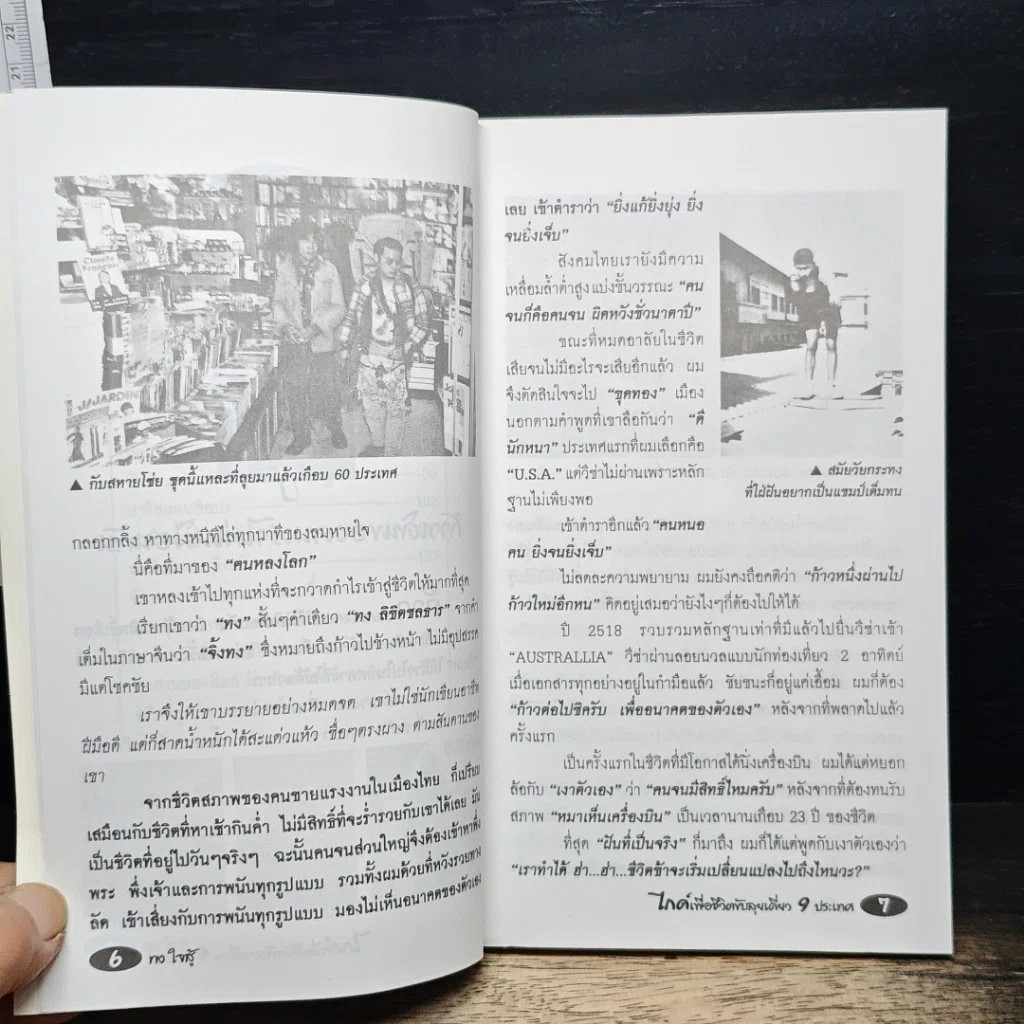 22
21
Claude
J/JARDIN
▲ กับสหายโซ่ย ชุดนี้แหละที่ลุยมาแล้วเกือบ 60 ประเทศ
กลอกกลิ้ง หาทางหนีทีไล่ทุกนาทีของลมหายใจ
นี่คือที่มาของ “คนหลงโลก”
เขาหลงเข้าไปทุกแห่งที่จะกวาดกำไรเข้าสู่ชีวิตให้มากที่สุด
เรียกเขาว่า “ทง” สั้นๆคำเดียว “ทง ลิขิตชลธาร” จากคำ
เต็มในภาษาจีนว่า “จิ้งทง” ซึ่งหมายถึงก้าวไปข้างหน้า ไม่มีอุปสรรค
มีแต่โชคชัย
เราจึงให้เขาบรรยายอย่างหมดจด เขาไม่ใช่นักเขียนอาชีพ
ฝีมือดี แต่ก็สาดน้ำหนักได้สะแด่วแห้ว ซื่อๆตรงผาง ตามสันดานของ
เขา
จากชีวิตสภาพของคนขายแรงงานในเมืองไทย ก็เปรียบ
เสมือนกับชีวิตที่หาเช้ากินค่ำ ไม่มีสิทธิ์ที่จะร่ำรวยกับเขาได้เลย มัน
เป็นชีวิตที่อยู่ไปวันๆจริงๆ ฉะนั้นคนจนส่วนใหญ่จึงต้องเข้าหาพึ่ง
พระ พึ่งเจ้าและการพนันทุกรูปแบบ รวมทั้งผมด้วยที่หวังรวยทาง
ลัด เข้าเสี่ยงกับการพนันทุกรูปแบบ มองไม่เห็นอนาคตของตัวเอง
6 ทง ใจสู้
เลย เข้าตำราว่า “ยิ่งแก้ยิ่งยุ่ง ยิ่ง
จนยิ่งเจ็บ”
สังคมไทยเรายังมีความ
เหลื่อมล้ำต่ำสูงแบ่งชั้นวรรณะ “คน
จนก็คือคนจน ผิดหวังชั่วนาตาปี”
ขณะที่หมดอาลัยในชีวิต
เสียจนไม่มีอะไรจะเสียอีกแล้ว ผม
จึงตัดสินใจจะไป “ขุดทอง” เมือง
นอกตามคำพูดที่เขาลือกันว่า “ดี
นักหนา” ประเทศแรกที่ผมเลือกคือ
“U.S.A.” แต่วีซ่าไม่ผ่านเพราะหลัก
ฐานไม่เพียงพอ
▲ สมัยวัยกระทง
ที่ใฝ่ฝันอยากเป็นแชมป์เต็มทน
เข้าตำราอีกแล้ว “คนหนอ
คน ยิ่งจนยิ่งเจ็บ”
ไม่ลดละความพยายาม ผมยังคงถือคติว่า “ก้าวหนึ่งผ่านไป
ก้าวใหม่อีกหน” คิดอยู่เสมอว่ายังไงๆก็ต้องไปให้ได้
ปี 2518 รวบรวมหลักฐานเท่าที่มีแล้วไปยื่นวีซ่าเข้า
“AUSTRALLIA” วีซ่าผ่านลอยนวลแบบนักท่องเที่ยว 2 อาทิตย์
เมื่อเอกสารทุกอย่างอยู่ในกำมือแล้ว ชัยชนะก็อยู่แค่เอื้อม ผมก็ต้อง
“ก้าวต่อไปซิครับ เพื่ออนาคตของตัวเอง” หลังจากที่พลาดไปแล้ว
ครั้งแรก
เป็นครั้งแรกในชีวิตที่มีโอกาสได้นั่งเครื่องบิน ผมได้แต่หยอก
ล้อกับ “เงาตัวเอง” ว่า “คนจนมีสิทธิ์ไหมครับ” หลังจากที่ต้องทนรับ
สภาพ “หมาเห็นเครื่องบิน” เป็นเวลานานเกือบ 23 ปี ของชีวิต
ที่สุด “ฝันที่เป็นจริง” ก็มาถึง ผมก็ได้แต่พูดกับเงาตัวเองว่า
“เราทำได้ ฮ่า...ฮ่า...ชีวิตข้าจะเริ่มเปลี่ยนแปลงไปถึงไหนวะ?”
ไกด์เพื่อชีวิตฟับลุยเดี่ยว 9 ประเทศ 7